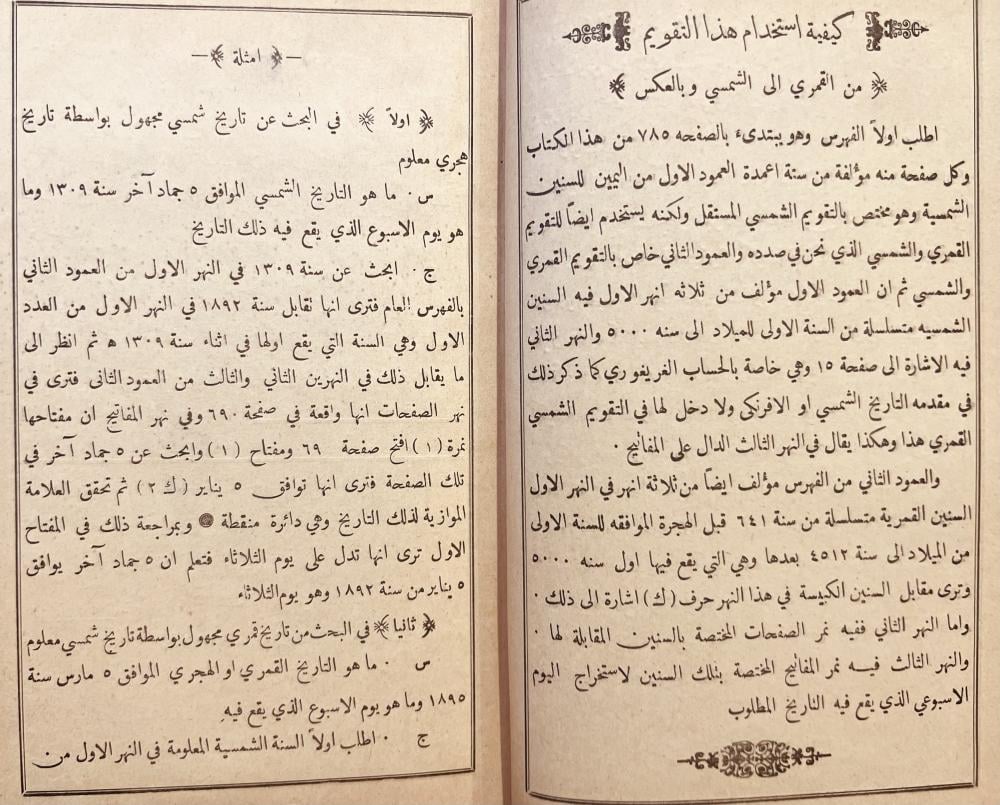 كيفية استخدام هذا التقويم
من القمري الى الشمسي وبالعكس
اطلب اولاً الفهرس وهو يبتدىء بالصفحه ٧٨٥ من هذا الكتاب
وكل صفحة منه مؤلفة من ستة اعمدة العمود الاول من اليمين للسنين
الشمسية وهو مختص بالتقويم الشمسي المستقل ولكنه يستخدم ايضاً للتقويم
القمري والشمسي الذي نحن في صدده والعمود الثاني خاص بالتقويم القمري
والشمسي ثم ان العمود الاول مؤلف من ثلاثه انهر الاول فيه السنين
الشمسيه متسلسلة من السنة الاولى للميلاد الى سنه ٥٠٠٠ والنهر الثاني
فيه الاشارة الى صفحة ١٥ وهي خاصة بالحساب الغريغوري كما ذكر ذلك
في مقدمه التاريخ الشمسي او الافرنكي ولا دخل لها في التقويم الشمسي
القمري هذا وهكذا يقال في النهر الثالث الدال على المفاتيح ·
والعمود الثاني من الفهرس مؤلف ايضاً من ثلاثة انهر في النهر الاول
السنين القمرية متسلسلة من سنة ٦٤١ قبل الهجرة الموافقه للسنة الاولى
من الميلاد الى سنة ٤٥١٢ بعدها وهي التي يقع فيها اول سنه ٥٠٠٠
وترى مقابل السنين الكبيسة في هذا النهر حرف (ك) اشارة الى ذلك ·
واما النهر الثاني ففيه نمر الصفحات المختصة بالسنين المقابلة لها ·
والنهر الثالث فيه نمر المفاتيح المختصة بتلك السنين لاستخراج اليوم
الاسبوعي الذي يقع فيه التاريخ المطلوب
امثلة
اولاً في البحث عن تاريخ شمسي مجهول بواسطة تاريخ
هجري معلوم
س · ما هو التاريخ الشمسي الموافق ٥ جماد آخر سنة ١٣٠٩ وما
هو يوم الاسبوع الذي يقع فيه ذلك التاريخ
ج · ابحث عن سنة ١٣٠٩ في النهر الاول من العمود الثاني
بالفهرس العام فترى انها تقابل سنة ١٨٩٢ في النهر الاول من العدد
الاول وهي السنة التي يقع اولها في اثناء سنة ١٣٠٩ ه ثم انظر الى
ما يقابل ذلك في النهرين الثاني والثالث من العمود الثاني فترى في
نهر الصفحات انها واقعة في صفحة ٦٩٠ وفي نهر المفاتيح ان مفتاحها
نمرة (١) افتح صفحة ٦٩ ومفتاح (١) وابحث عن ٥ جماد آخر في
تلك الصفحة فترى انها توافق ٥ يناير (ك ٢) ثم تحقق العلامة
الموازية لذلك التاريخ وهي دائرة منقطة وبمراجعة ذلك في المفتاح
الاول ترى انها تدل على يوم الثلاثاء فتعلم ان ٥ جماد آخر يوافق
٥ يناير من سنة ١٨٩٢ وهو يوم الثلاثاء
ثانيا في البحث من تاريخ قمري مجهول بواسطة تاريخ شمسي معلوم
س · ما هو التاريخ القمري او الهجري الموافق ٥ مارس سنة
١٨٩٥ وما هو يوم الاسبوع الذي يقع فيهِ
ج · اطلب اولاً السنة الشمسية المعلومة في النهر الاول من